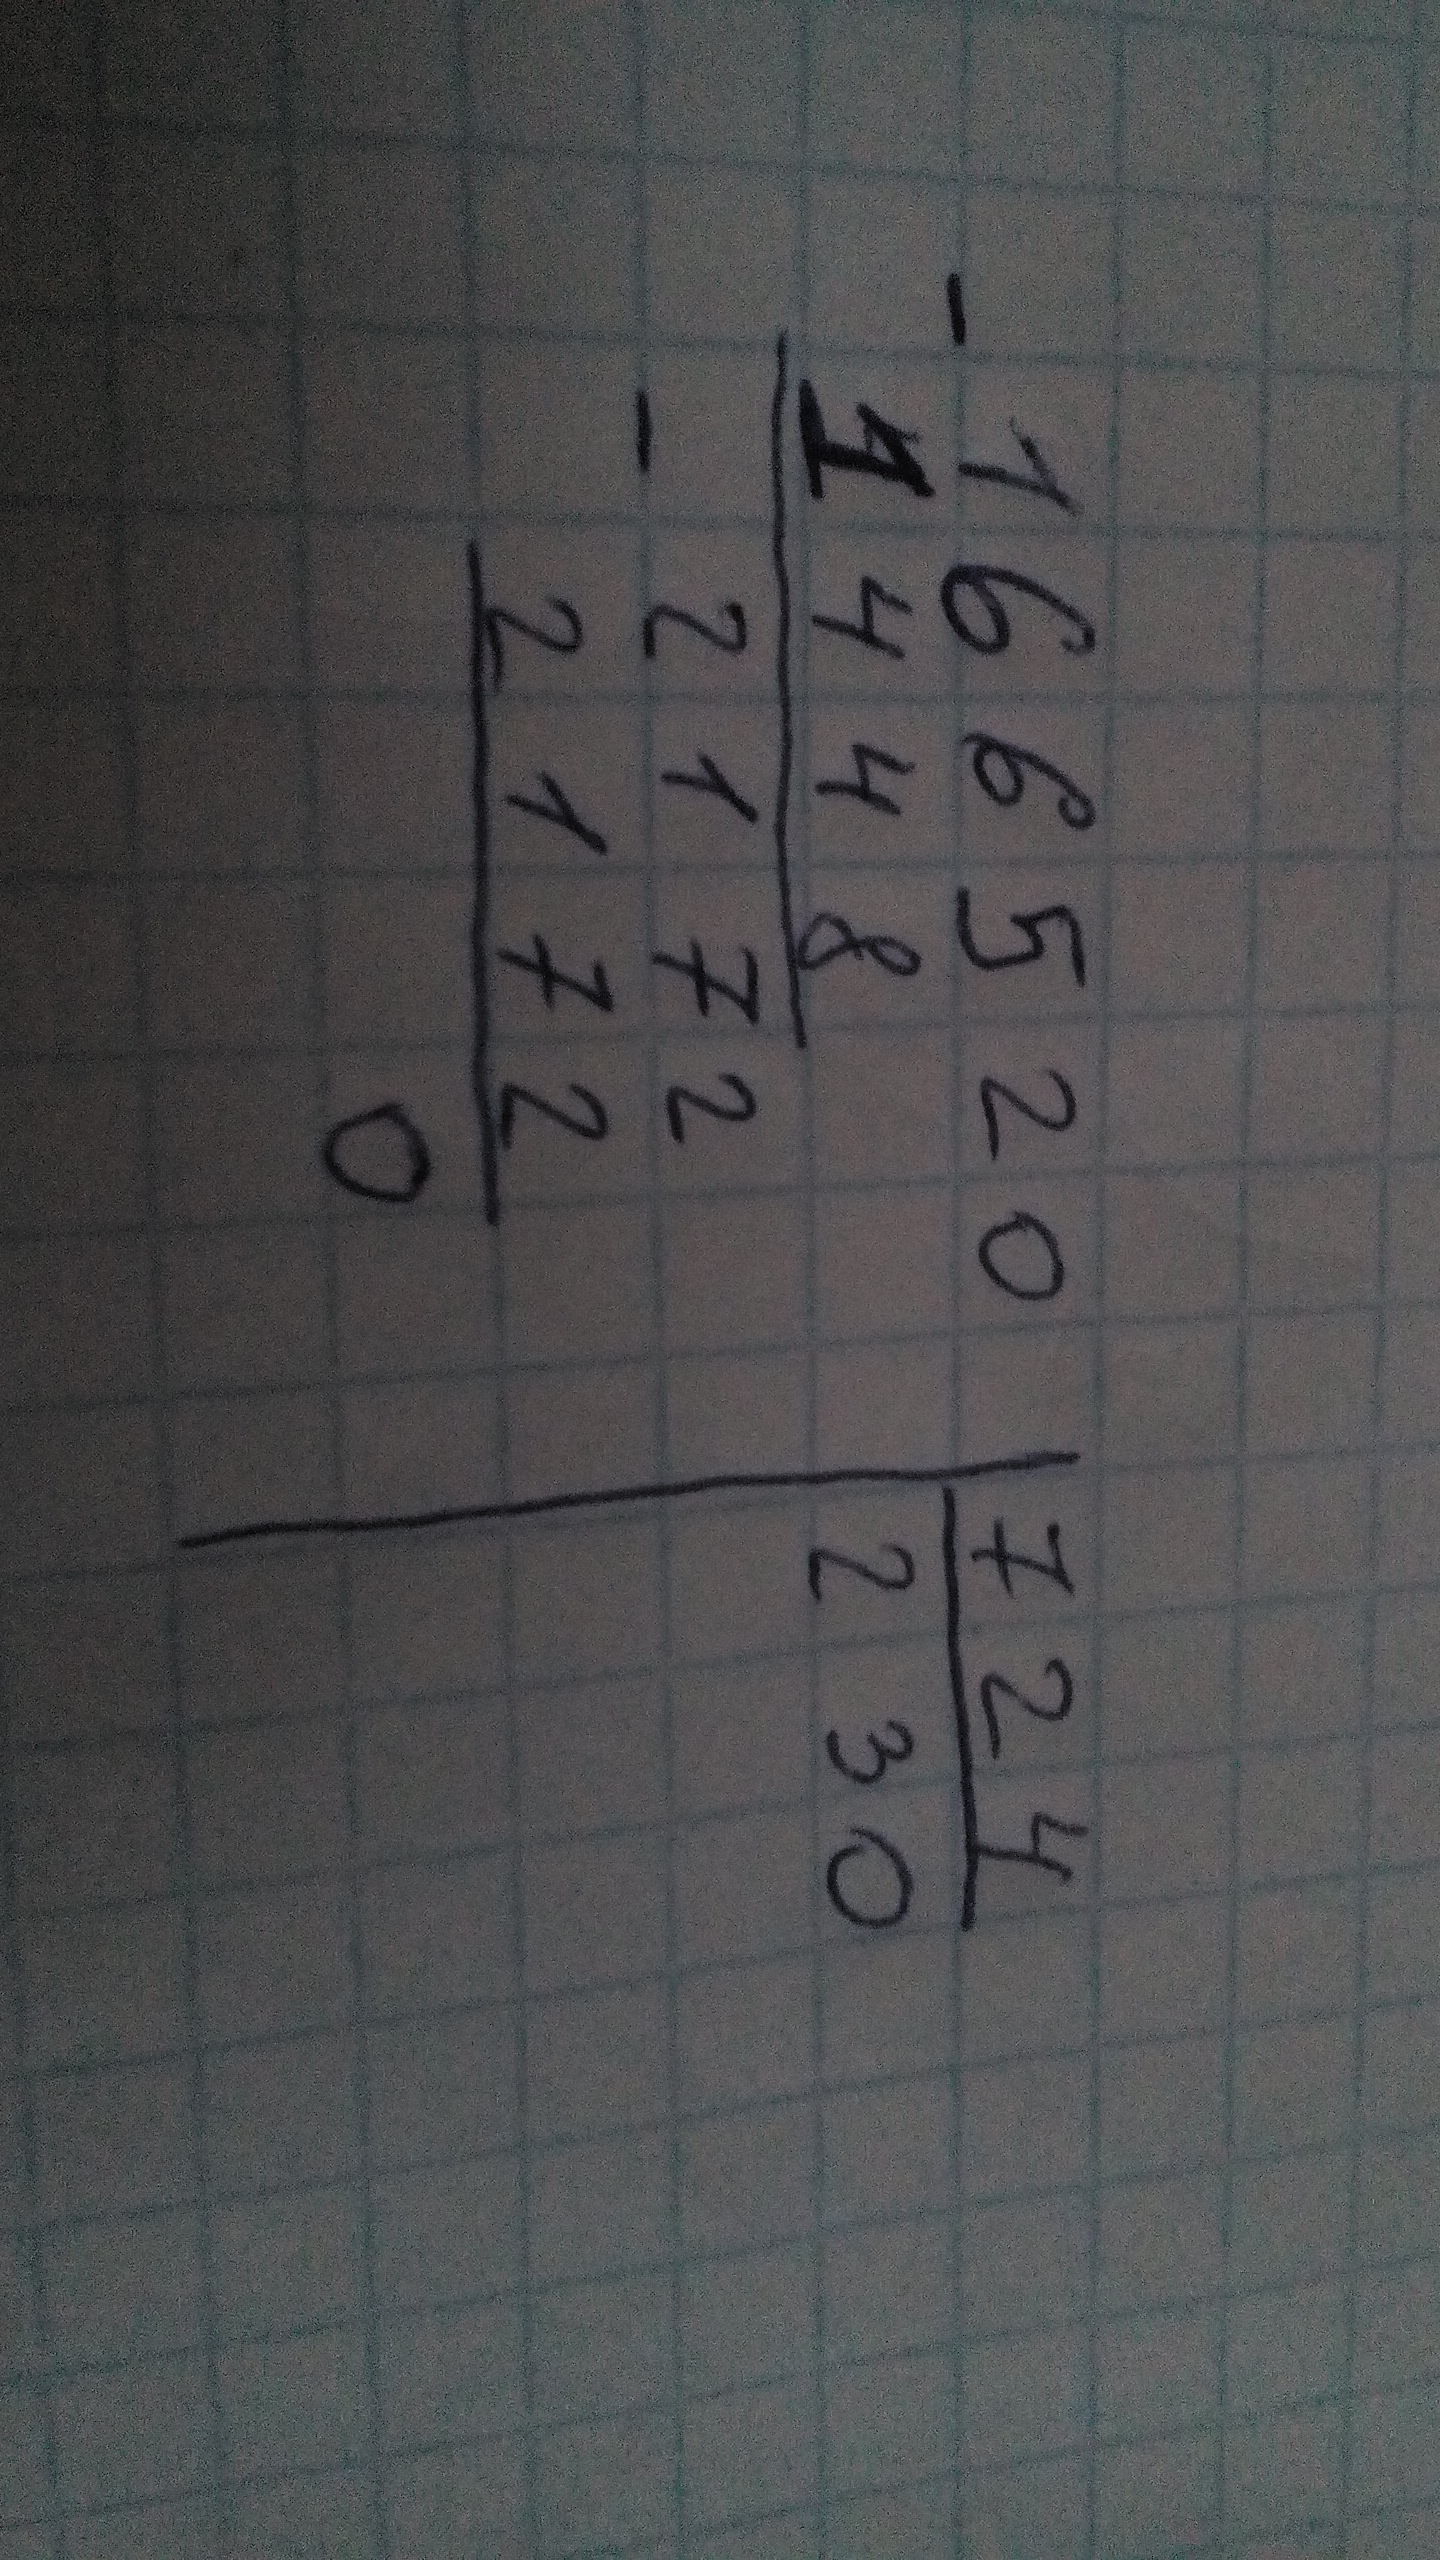 - 166520 | 724
1448 230
- 2172
2172
0